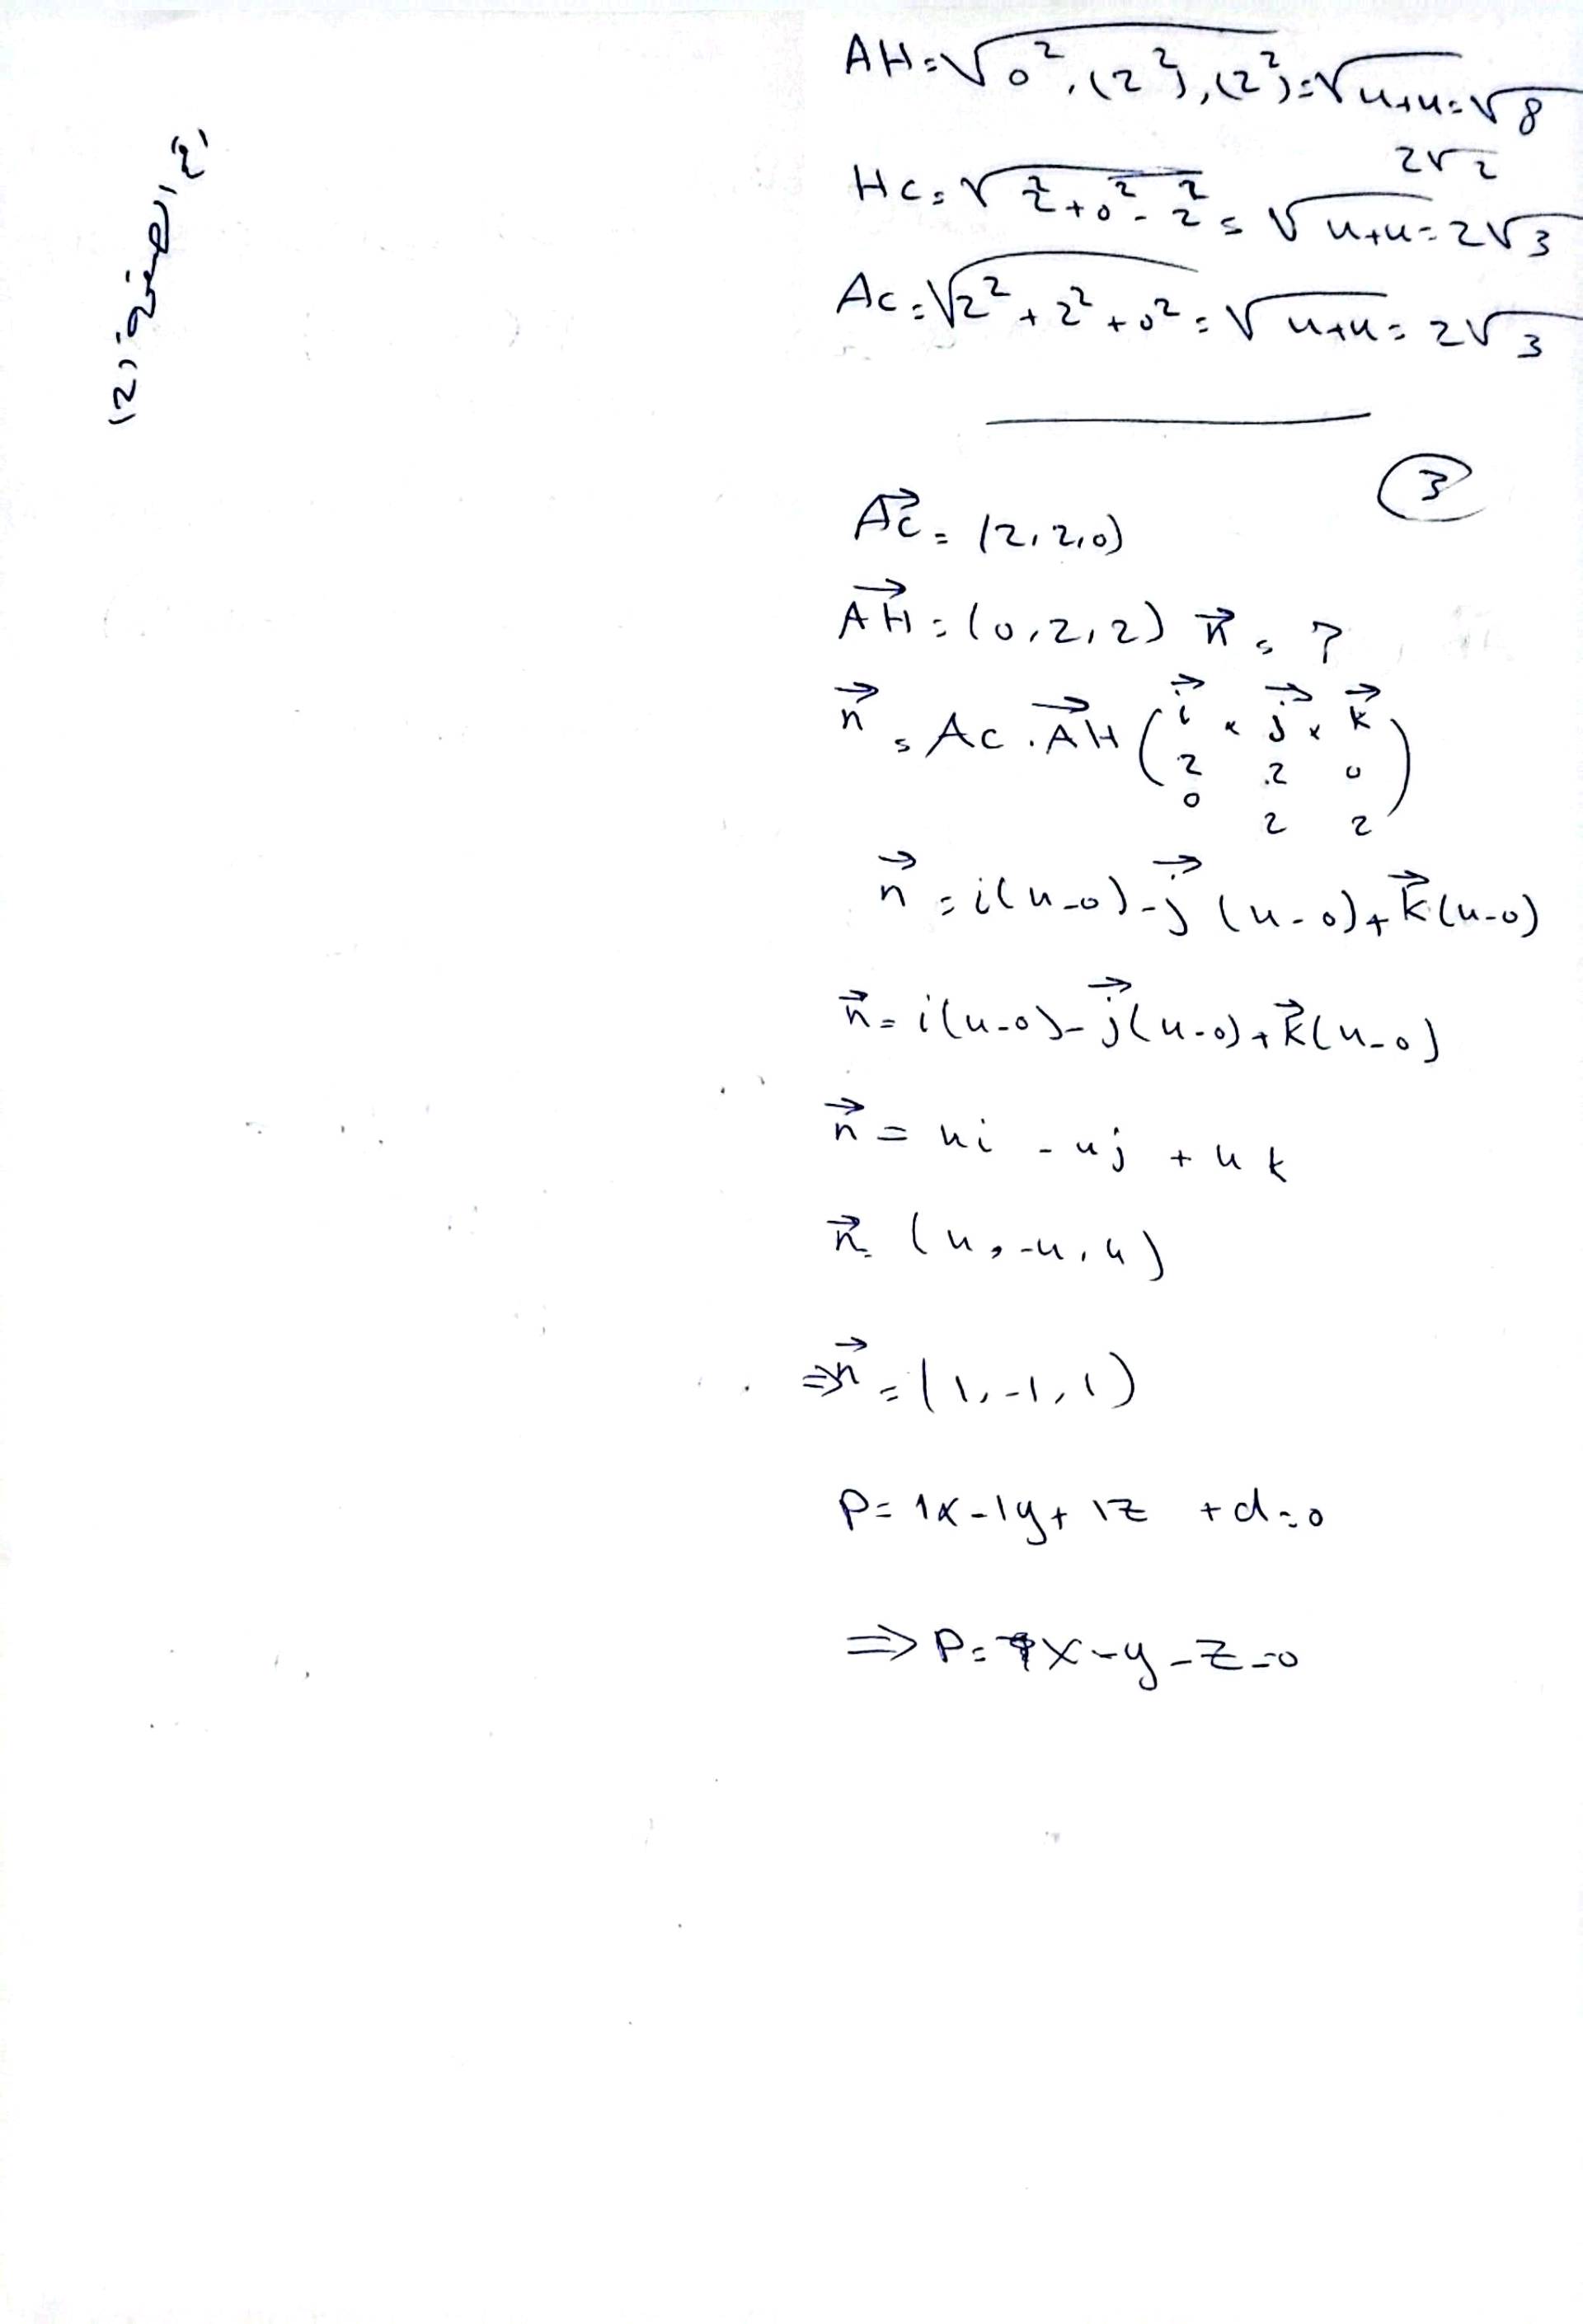 AH=√0², (2²), (2²)=√4+4=√8
2√2
HC=√2²+0²-2²=√4+4=2√3
AC=√2²+2²+0²=√4+4=2√3
3
AC⃗=(2,2,0)
AH⃗=(0,2,2) n⃗=?
n⃗=AC.AH⃗(i⃗ × j⃗ × k⃗
2 2 0
0 2 2)
n⃗=i(4-0)-j⃗(4-0)+k⃗(4-0)
n⃗=i(4-0)-j⃗(4-0)+k⃗(4-0)
n⃗=4i-4j+4k
n⃗=(4,-4,4)
⇒n⃗=(1,-1,1)
P=1x-1y+1z+d=0
⇒P=1x-y-z=0